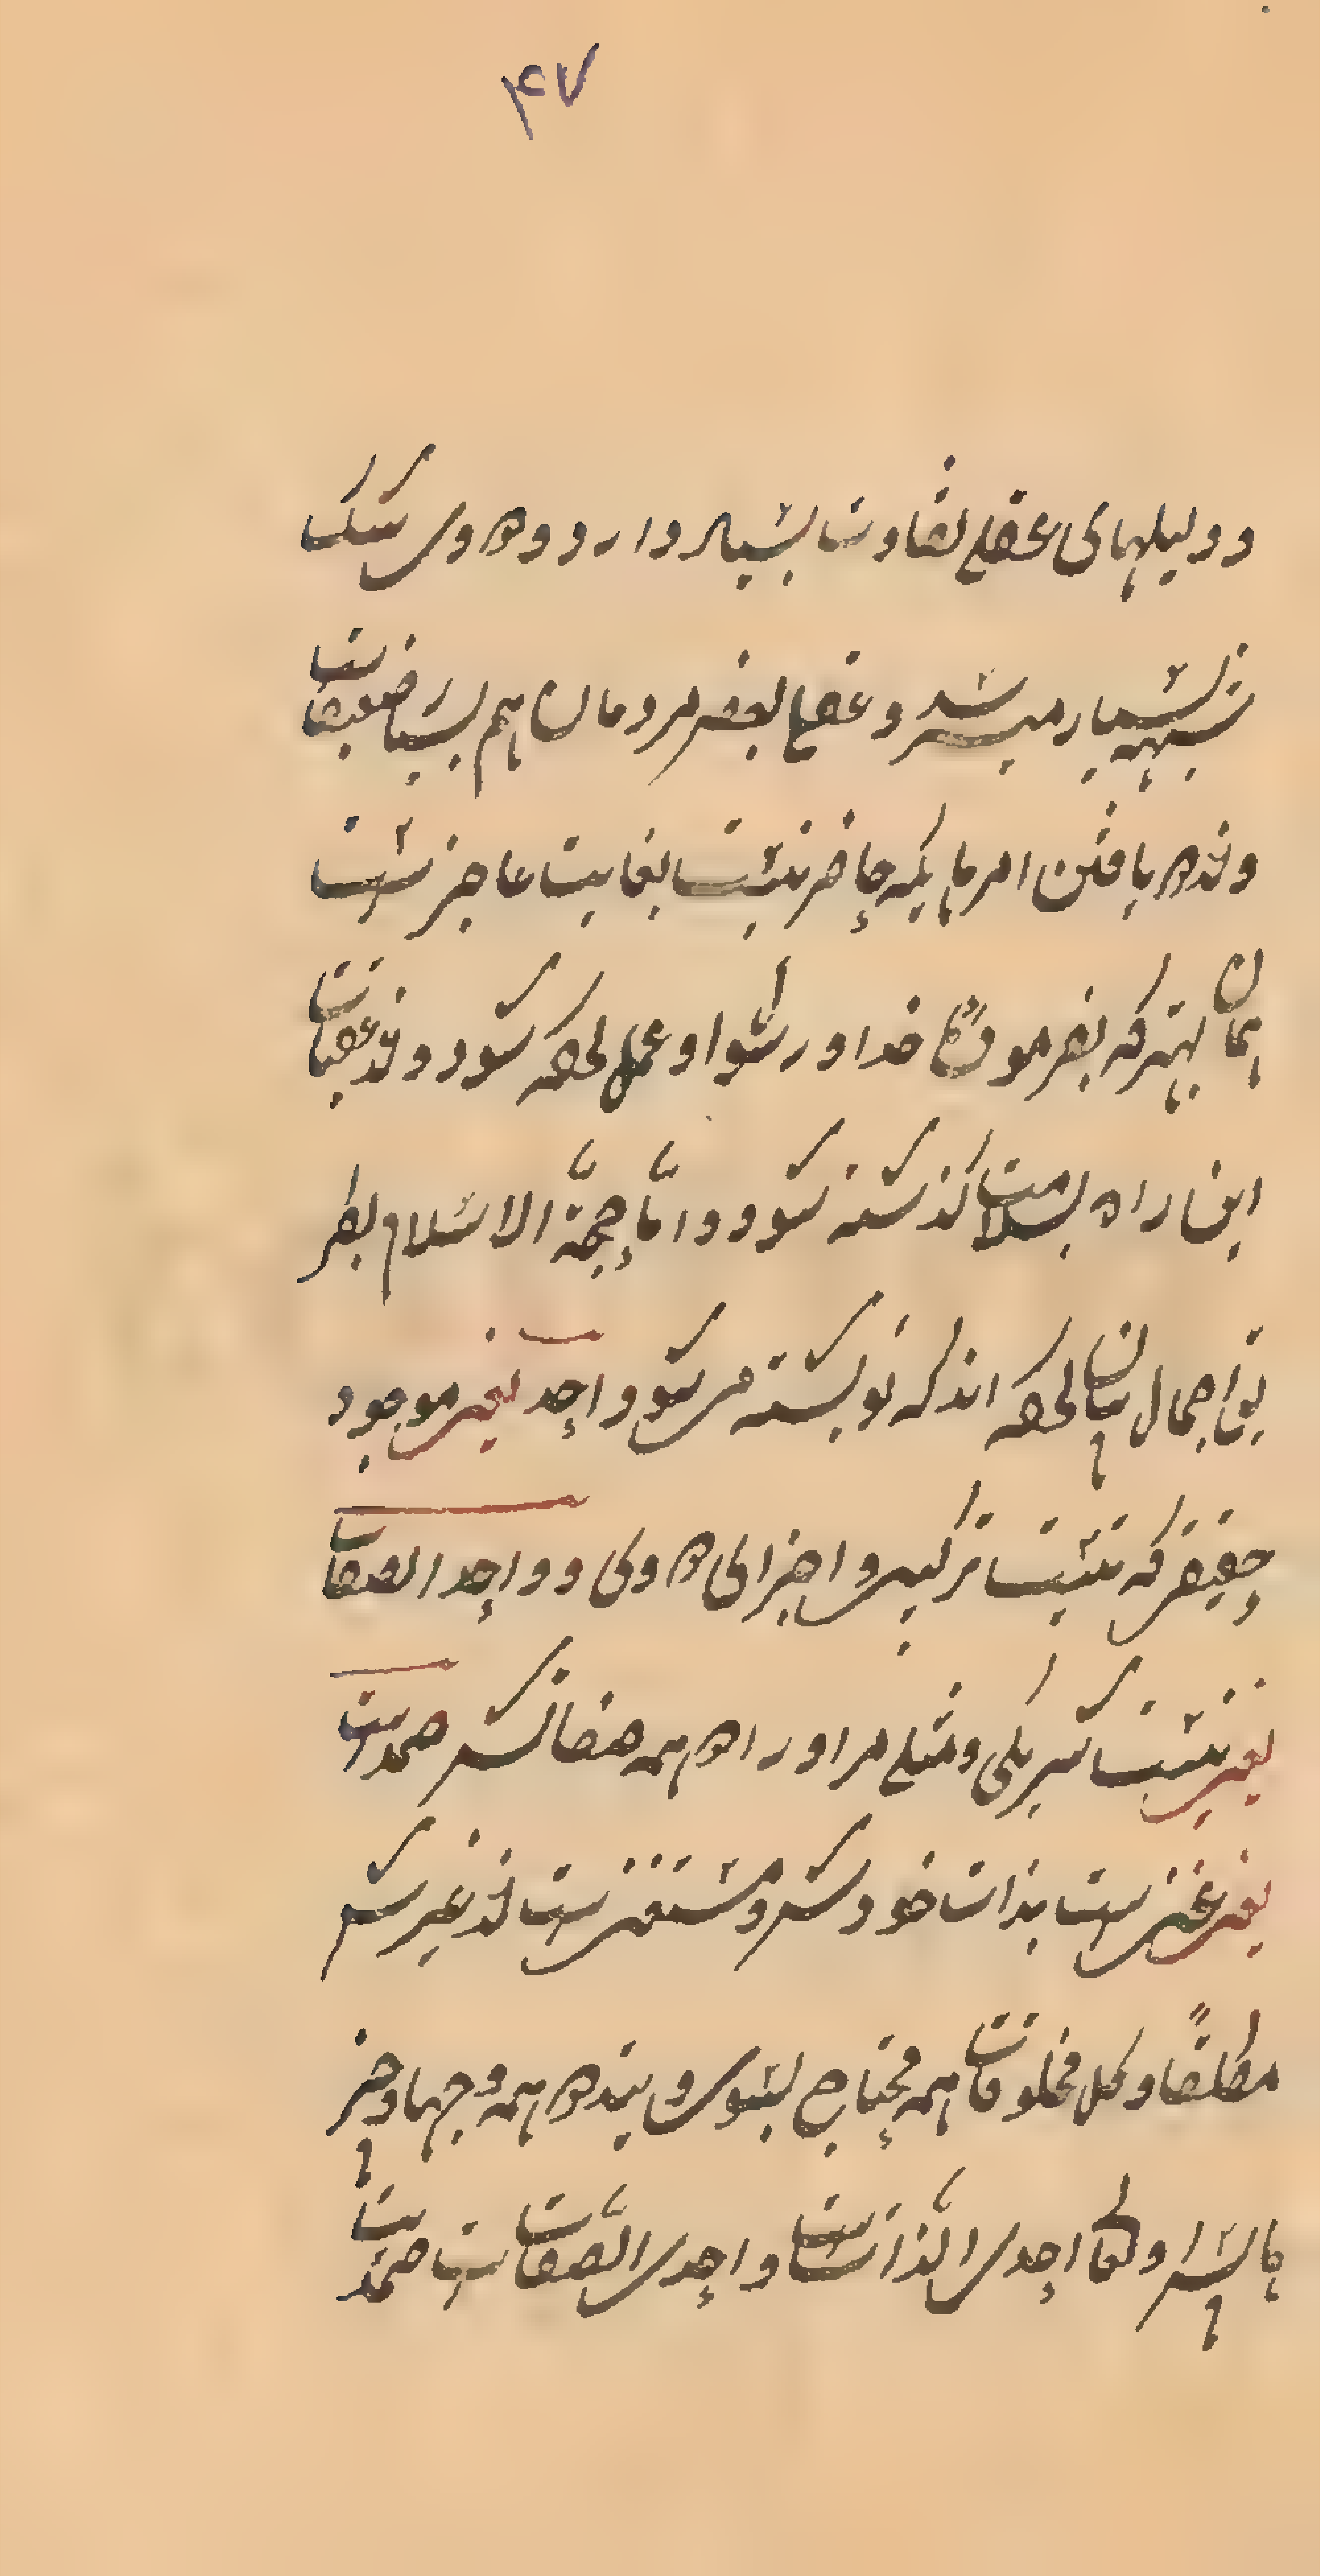 ۴۷
و دلیلهای عقلی تفاوت بسیار دارد و در وی شک
شبهه بسیار میباشد و عقل بعضی مردمان هم بسیار ضعیف است
و در یافتن امرهایکه حاضر نیست بغایت عاجز است
همان بهتر که بفرموده خدا و رسول او عمل کرده شود و در عقبات
این راه بسلامت گذشته شود و امّا حجّة الاسلام بطر
یق اجمال بیان کرده اند که نوشته می شود احد یعنی موجود
حقیقی که نیست ترکیب و اجزای در وی و واحد الصفات
یعنی نیست شریکی و مثلی مر او را در همه صفاتش صمد است
یعنی غنی است بذات خودش و مستغنی است از غیرش
مطلقًا و کل مخلوقات همه محتاج بسوی ویند در همه وجهها و چیز
هاش اولها احدی الذات است و احدی الصّفات است صمد است